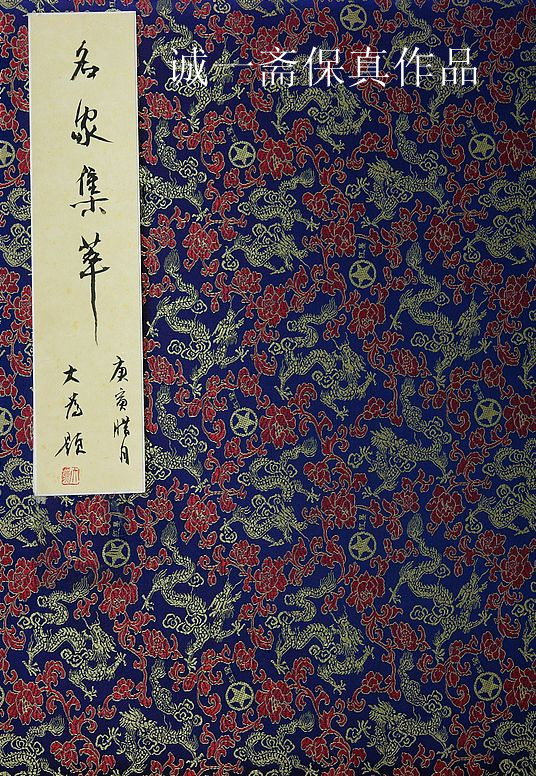 诚一斋保真作品
名家集萃
庚寅腊月
大为题